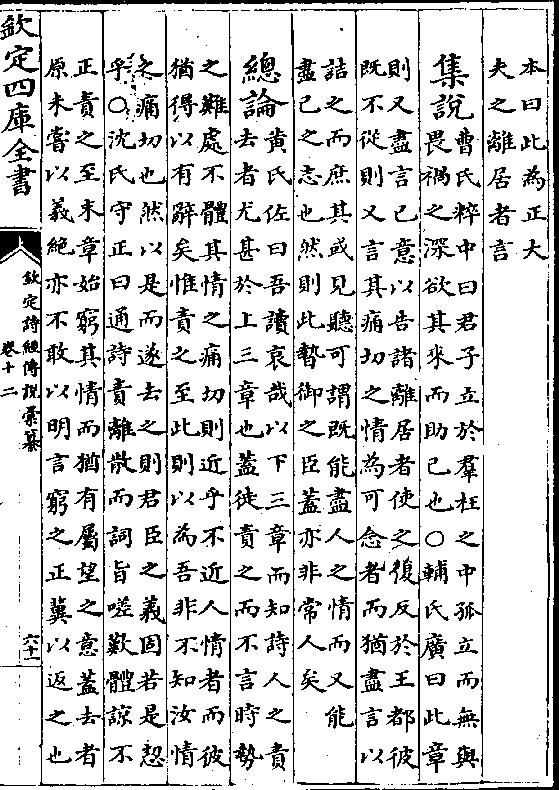 本曰此為正大
夫之離居者言
集說曹氏粹中曰君子立於羣枉之中孤立而無與
畏禍之深欲其來而助己也○輔氏廣曰此章
則又盡言己意以告諸離居者使之復反於王都彼
既不從則又言其痛切之情為可念者而猶盡言以
詰之而庶其或見聽可謂既能盡人之情而又能
盡己之志也然則此暬御之臣蓋亦非常人矣
總論黃氏佐曰吾讀哀哉以下三章而知詩人之責
去者尤甚於上三章也蓋徒責之而不言時勢
之難處不體其情之痛切則近乎不近人情者而彼
猶得以有辭矣惟責之至此則以為吾非不知汝情
之痛切也然以是而遂去之則君臣之義固若是恝
乎○沈氏守正曰通詩責離散而詞旨嗟歎體諒不
正責之至末章始窮其情而猶有屬望之意蓋去者
原未嘗以義絕亦不敢以明言窮之正冀以返之也
欽定四庫全書
欽定詩經傳說彙纂
卷十二
六十一